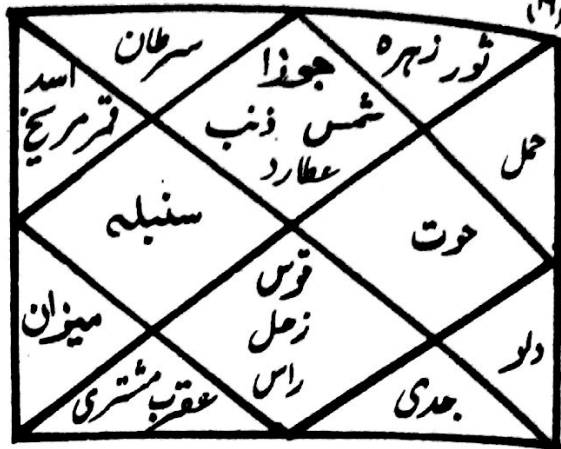 سرطان
جوزا
شمس ذنب
عطارد
ثور زہرہ
اسد
قمر مریخ
حمل
سنبلہ
حوت
قوس
زحل
راس
میزان
دلو
عقرب مشتری
جدی